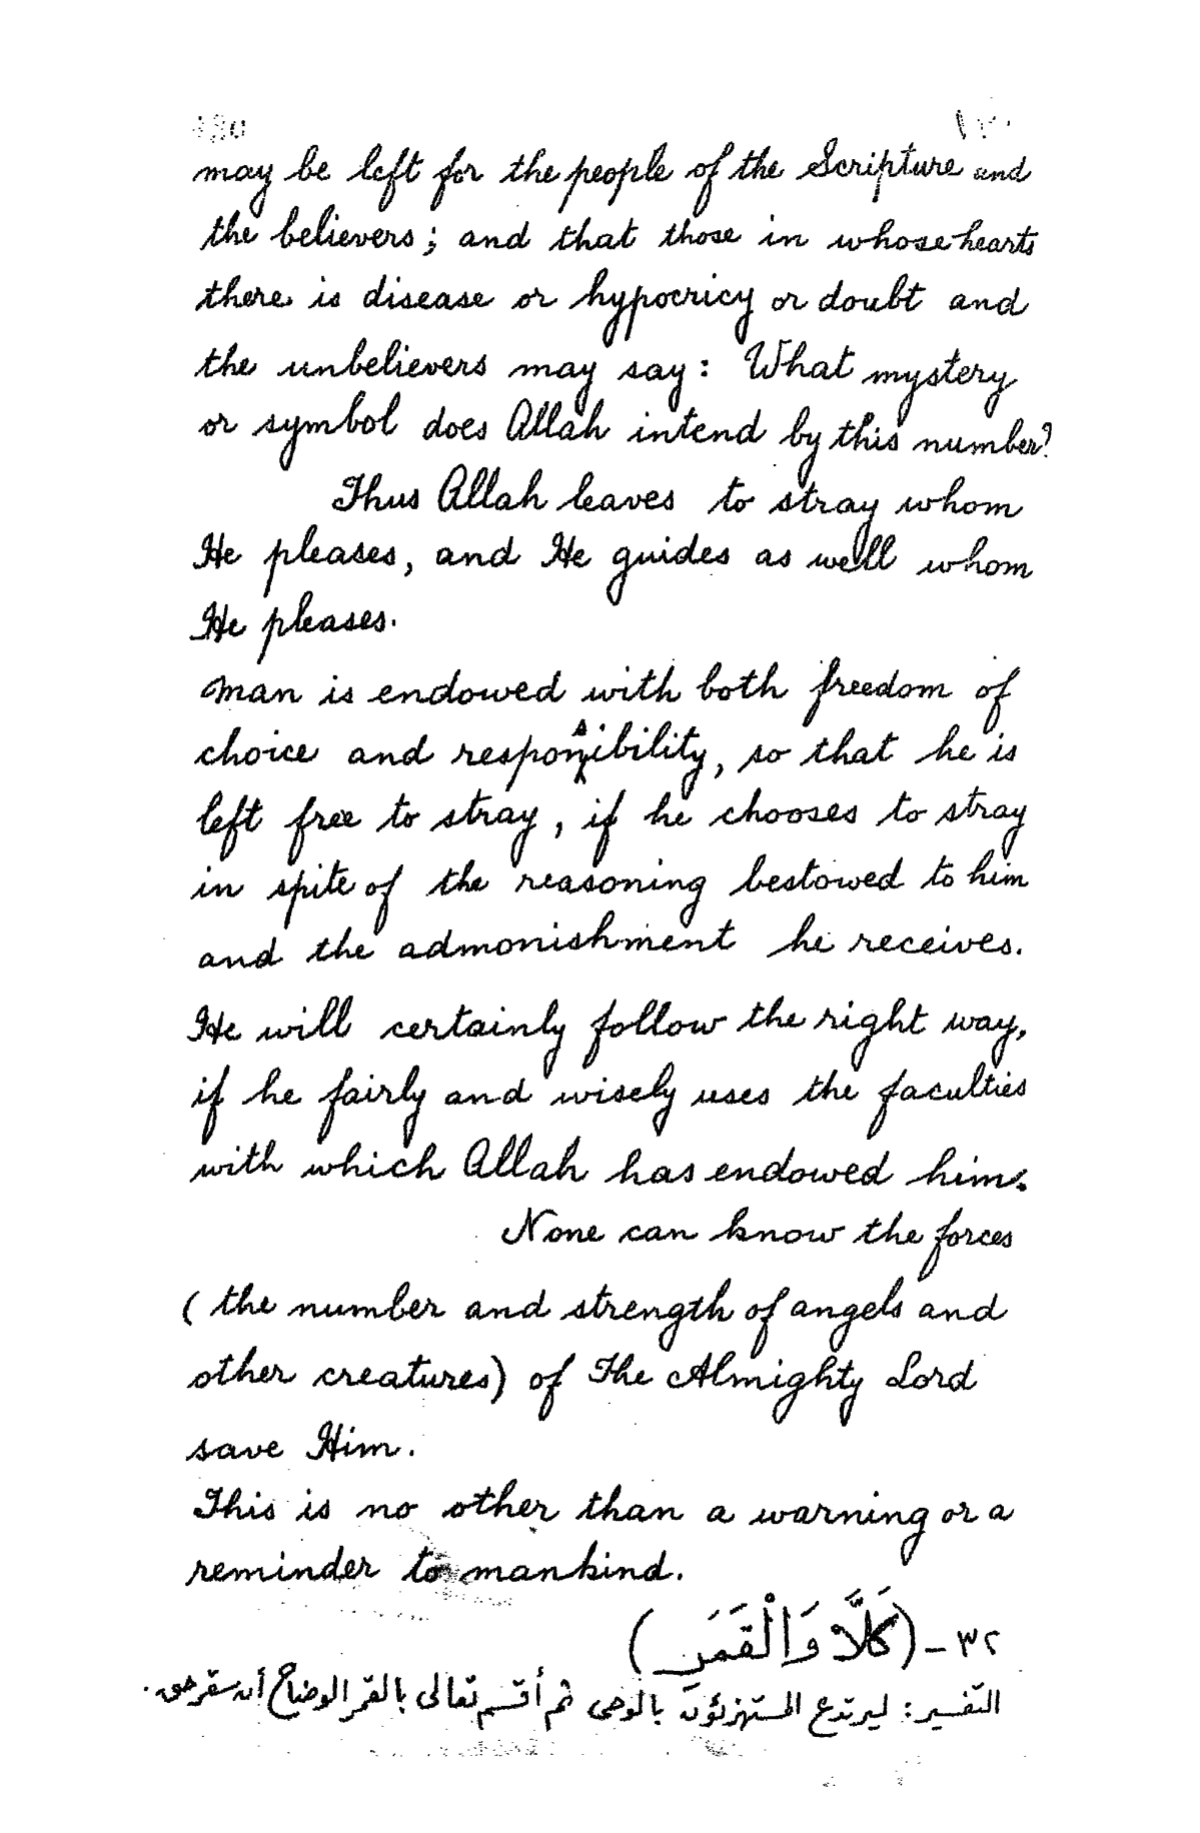 may be left for the people of the Scripture and
the believers; and that those in whose hearts
there is disease or hypocricy or doubt and
the unbelievers may say: What mystery
or symbol does Allah intend by this number?
Thus Allah leaves to stray whom
He pleases, and He guides as well whom
He pleases.
Man is endowed with both freedom of
choice and responsibility, so that he is
left free to stray, if he chooses to stray
in spite of the reasoning bestowed to him
and the admonishment he receives.
He will certainly follow the right way,
if he fairly and wisely uses the faculties
with which Allah has endowed him.
None can know the forces
(the number and strength of angels and
other creatures) of The Almighty Lord
save Him.
This is no other than a warning or a
reminder to mankind.
٣٢ - (كَلَّا وَالْقَمَرِ)
التفسير: ليرتدع المستهزئون بالوحى ثم أقسم تعالى بالقمر الوضاح أن سقر حق.